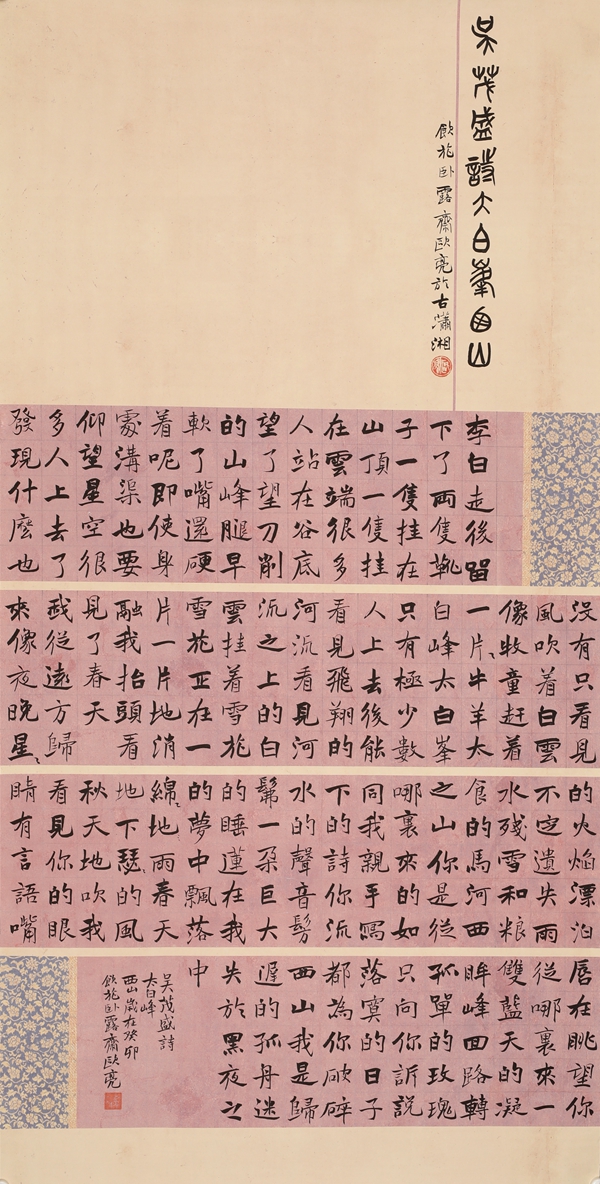 吴茂盛詩太白峯西山
飲花卧露齋歐亮於古瀟湘
李白走後留
下了兩隻靴
子一隻挂在
山頂一隻挂
在雲端很多
人站在谷底
望了望刀削
的山峰腿早
軟了嘴還硬
着呢即使身
處溝渠也要
仰望星空很
多人上去了
發現什麼也
没有只看見
風吹着白雲
像牧童趕着
一片〻牛羊太
白峰太白峯
只有極少數
人上去後能
看見飛翔的
河流看見河
流之上的白
雲挂着雪花
雪花正在一
片一片地消
融我抬頭看
見了春天
我從遠方歸
來像夜晚星〻
的火焰漂泊
不定遺失雨
水殘雪和粮
食的馬河西
之山你是從
哪裏來的如
同我親手寫
下的詩你流
水的聲音髣
髴一朵巨大
的睡蓮在我
的夢中飄落
綿〻地雨春天
地下瑟〻的風
秋天地吹我
看見你的眼
睛有言語嘴
唇在眺望你
從哪裏來一
雙藍天的凝
眸峰回路轉
孤單的玫瑰
只向你訴說
落寞的日子
都為你破碎
西山我是歸
遲的孤舟迷
失於黑夜之
中
吴茂盛詩
太白峰
西山歲在癸卯
飲花卧露齋歐亮